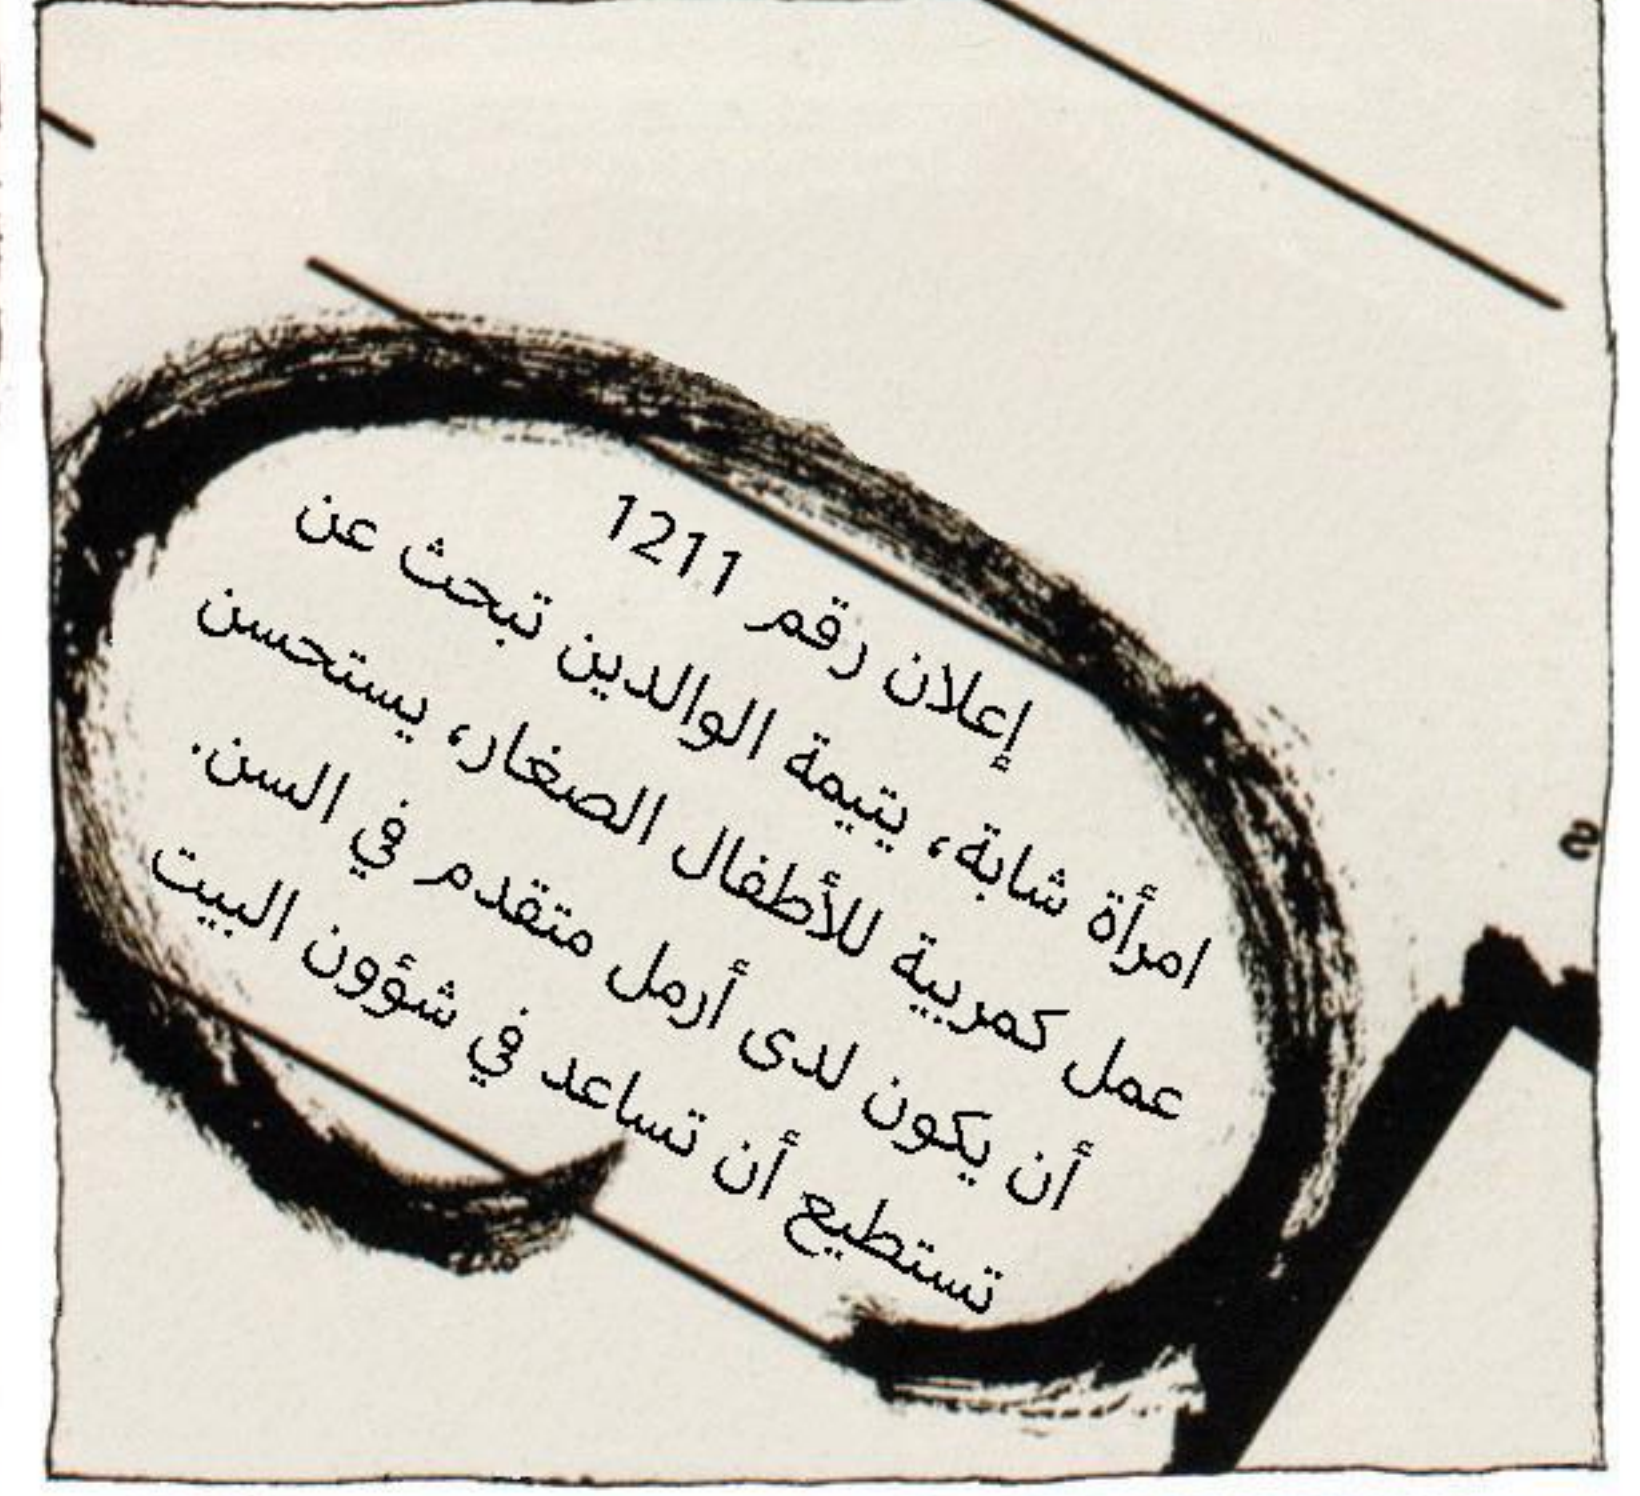 إعلان رقم 1211
امرأة شابة، يتيمة الوالدين تبحث عن
عمل كمربية للأطفال الصغار، يستحسن
أن يكون لدى أرمل متقدم في السن.
تستطيع أن تساعد في شؤون البيت